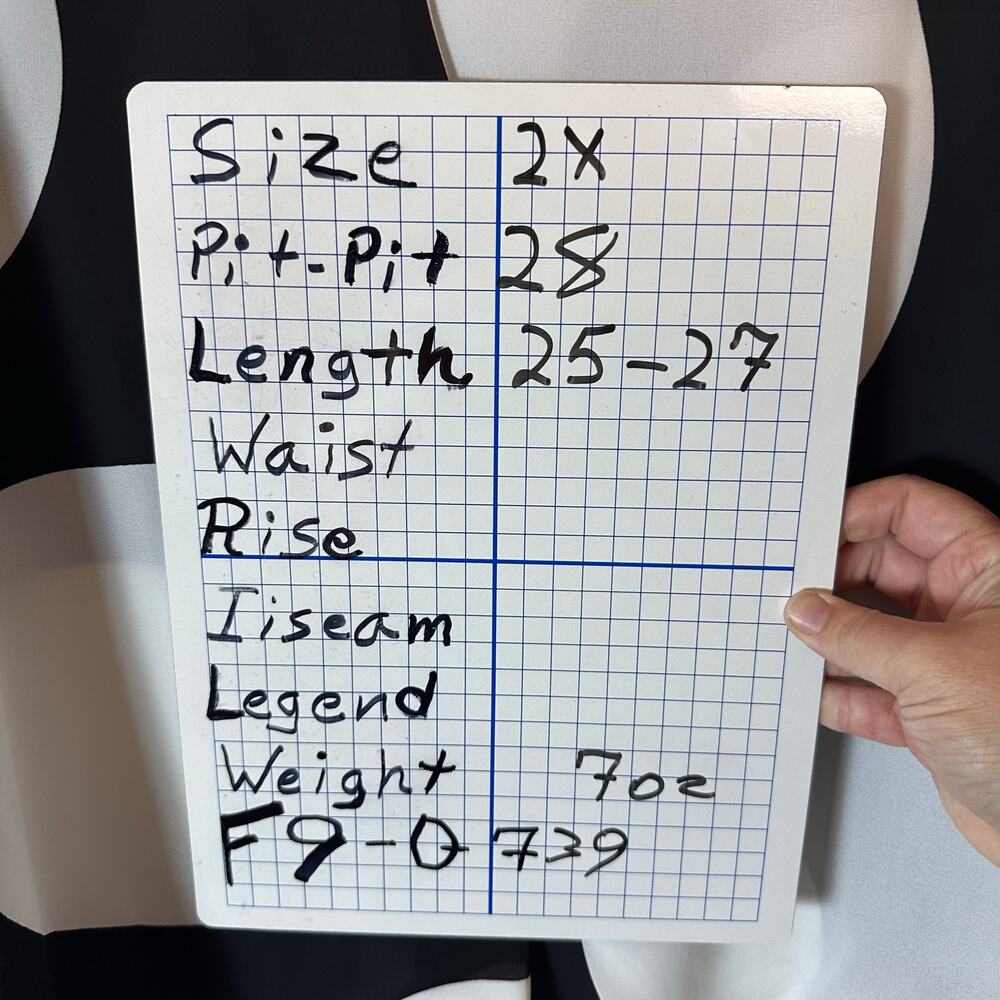 Size 2X
Pit-Pit 28
Length 25-27
Waist
Rise
Iiseam
Legend
Weight 7oz
F9-0 739